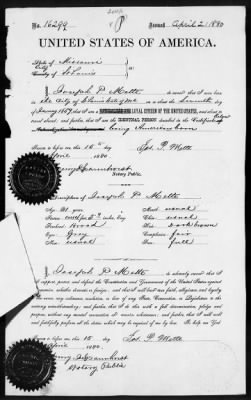 No. 16299 Issued April 21 1880
UNITED STATES OF AMERICA.
State of Missouri
City
County of St Louis
I, Joseph P Motte do swear that I was
born in the City of
of January 1859 that I am a LOYAL CITIZEN OF THE UNITED STATES, and about
to travel abroad; and further, that I am the IDENTICAL PERSON described in the Certificate
being American born
Sworn to before me, this 15th day
of April 1880. Jos. P. Motte
Notary Public.
Description of Joseph P Motte
Age: 21 years Mouth: usual
Stature: Chin: usual
Forehead: Broad Hair: Dark brown
Eyes: Grey Complexion: fair
Nose: usual Face: full
I, Joseph P Motte do solemnly swear that I will
support, protect, and defend the Constitution and Government of the United States against
all enemies, whether domestic or foreign; and that I will bear true faith, allegiance, and loyalty
to the same, any ordinance, resolution, or law of any State, Convention, or Legislature to the
contrary notwithstanding; and further, that I do this with a full determination, pledge, and
purpose, without any mental reservation or evasion whatsoever; and further, that I will well
and faithfully perform all the duties which may be required of me by law. So help me God.
Sworn to before me, this 15 day
of April 1880. Jos. P. Motte
Notary Public